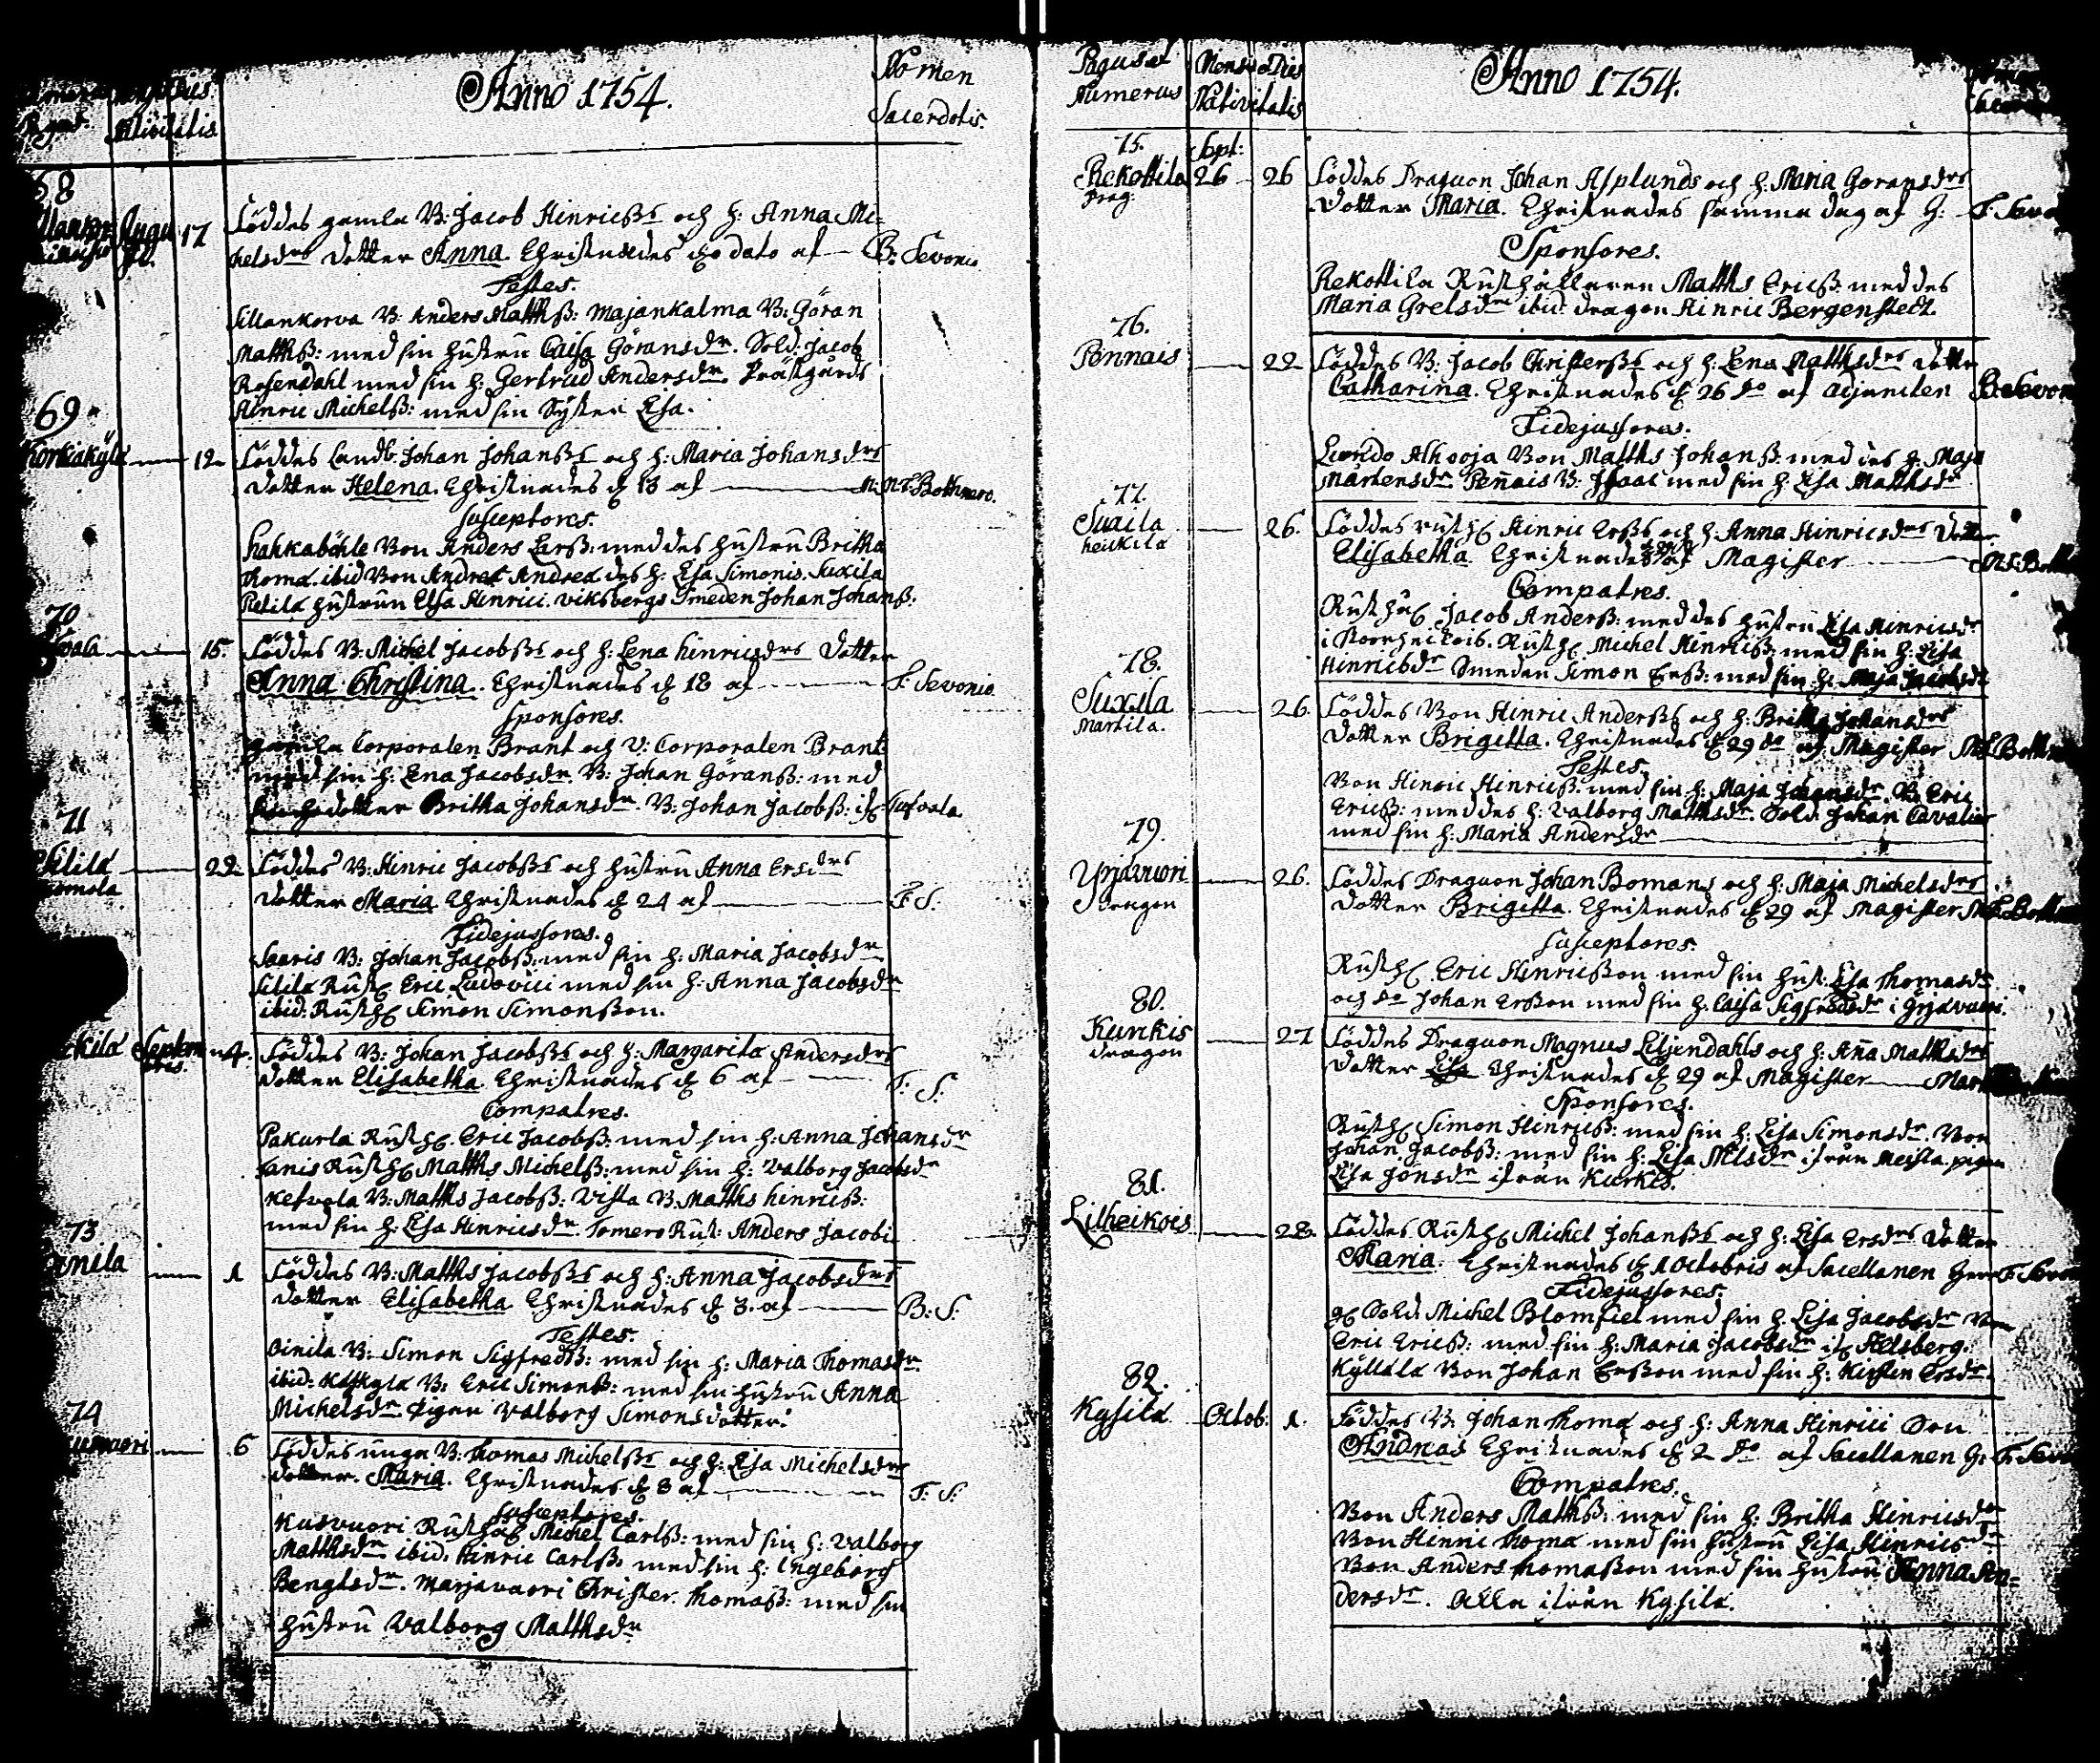 Anno 1754.
Nomen
Sacerdotis.
68
Augu
17
Föddes gamla B: Jacob Hinricßs och h: Anna Mi-
chelsdrs dotter Anna. Christnades eo dato af — B: Sevonio
Testes.
Sillankorva B: Anders Matthß: Majankalma B: Göran
Matthß: med sin hustru Caisa Göransdr. Sold: Jacob
Rosendahl med sin h: Gertrud Andersdr. Prästgårds
Hinric Michelß: med sin Syster Lisa.
69
Korkiakylä — 12
Föddes Landb. Johan Johanßs och h: Maria Johansdrs
dotter Helena. Christnades d 13 af — Bothnero.
Susceptores.
Hahkaböhle Bon Anders Larß: med des hustru Britha
Thomæ. ibid Bon Andreæ des h. Lisa Simonis. Suxila
Pietilä hustrun Elsa Henrici. Viksbergs Smeden Johan Johanß.
70
15.
Föddes B: Michel Jacobßs och h: Lena hinricsdrs dotter
Anna Christina. Christnades d 18 af — F. Sevonio
Sponsores.
gamla Corporalen Brant och V: Corporalen Brant
med sin h: Lena Jacobsdr. B: Johan Göranß: med
dotter Britha Johansdr. B: Johan Jacobß:
71
22.
Föddes B: Hinric Jacobßs och hustru Anna Ersdrs
dotter Maria Christnades d 24 af — F. S.
Fidejussores.
Saaris B: Johan Jacobß: med sin h: Maria Jacobsdr
Eric Ludovici med sin h: Anna Jacobsdr
ibid: Rusth Simon Simonßon.
Septem
bris.
4.
Föddes B: Johan Jacobßs och h: Margarita Andersdrs
dotter Elisabetha Christnades d 6 af — F: S:
Compatres.
Pakurla Rusth. Eric Jacobß: med sin h: Anna Johansdr
Tanis Rusth Matths Michelß: med sin h: Valborg Jacobsdr
B: Matths Jacobß: Vista B: Matths hinricß:
med sin h: Lisa Hinricsdr. Tomero Rust: Anders Jacobi
73
1
Föddes B: Matths Jacobßs och h: Anna Jacobsdrs
dotter Elisabetha Christnades d 3. af — B: S:
Testes.
Oinila B: Simon Sigfredß: med sin h: Maria Thomasdr.
ibid: B: Eric Simonß: med sin hustru Anna
Michelsdr. Pigan Valborg Simonsdotter.
74
6
Föddes unga B: Thomas Michelßs och h: Lisa Michelsdrs
dotter Maria. Christnades d 8 af — F: S:
Susceptores.
Kusvuori Rusth Michel Carlß: med sin h: Valborg
Matthsdr ibid. Hinric Carlß. med sin h: Ingeborg
Bengtsdr. Marjavuori Christer Thomaß: med sin
hustru Valborg Matthsdr
Pagus et
Numerus
Mensis Dies
Nativitatis
Anno 1754.
75.
Sept:
Rekottila 26 — 26
Drag:
Föddes Dragon Johan Asplunds och h: Maria Göransdrs
dotter Maria. Christnades samma dag af H:
Sponsores.
Rekottila Rusthållaren Matths Ericß: med des
Maria Grelsdr ibid: dragon Hinric Bergenstedt.
76.
Pennais — 22
Föddes B: Jacob Christerßs och h: Lena Matthsdrs dotter
Catharina. Christnades d 26 do af Adjuncten
Fidejussores.
Alhooja Bon Matths Johanß. med des h: Maja
Mårtensdr Pennais B: Isaac med sin h: Lisa Matthsdr
77.
Suxila
heikilä
26.
Föddes rusth Hinric Erßs och h: Anna Hinricsdrs
Elisabetha. Christnades af Magister
Compatres.
Rusth Jacob Anderß: med des hustru Lisa Henricsdr
Rusth Michel Hinricß: med sin h: Lisa
Hinricsdr Smeden Simon Erß: med sin h: Maja Jacobsdr
78.
Suxila
Martila.
26.
Föddes Bon Hinric Anderßs och h: Britha Johansdrs
dotter Brigitta. Christnades d 29 do af Magister
Testes.
Bon Hinric Hinricß: med sin h: Maja Johansdr. B: Eric
Ericß: med des h: Valborg Matthsdr. Sold: Johan Cavalier
med sin h: Maria Andersdr
79.
Yrjävuori
dragon
26.
Föddes Dragon Johan Bomans och h: Maja Michelsdrs
dotter Brigitta. Christnades d 29 af Magister
Susceptores.
Rusth Eric Hinricßon med sin hust: Lisa Thomasdr
och do Johan Erßon med sin h: Caisa Sigfredsdr i Yrjävuori.
80.
Kurkis
dragon
27
Föddes Dragon Magnus Liljendahls och h: Anna Matthsdrs
dotter Lisa Christnades d 29 af Magister
Sponsores.
Rusth Simon Hinricß: med sin h: Lisa Simonsdr. Bon
Johan Jacobß: med sin h: Lisa Nilsdr ifrån Meisla. pigan
Lisa Jönsdr ifrån Kurkis.
81.
Lilheikois — 28.
Föddes Rusth Michel Johanßs och h: Lisa Ersdrs dotter
Maria. Christnades d 1 Octobris af Sacellanen Herr
Fidejussores.
Sold: Michel Blomfiel med sin h. Lisa Jacobsdr
Eric Ericß: med sin h: Maria Jacobsdr
Kyllälä Bon Johan Erßon med sin h: Kirstin Ersdr.
82.
Kysilä — Octob: 1.
Föddes B: Johan Thomæ och h: Anna Hinrici Son
Andreas Christnades d 2 do af Sacellanen H:
Compatres.
Bon Anders Matthß: med sin h: Britha Hinricsdr
Bon Hinric Thomæ med sin hustru Lisa Hinricsdr
Bon Anders Thomaßon med sin hustru Anna An-
dersdr. Alla ifrån Kysilä.